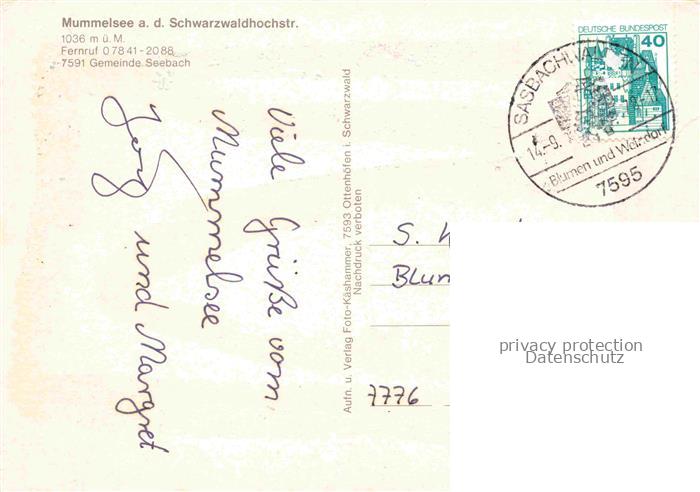 Mummelsee a. d. Schwarzwaldhochstr.
1036 m ü. M.
Fernruf 0 78 41 - 20 88
7591 Gemeinde Seebach
Viele Grüße vom
Mummelsee
Jörg
und Margret
Aufn. u. Verlag Foto-Käshammer, 7593 Ottenhöfen i. Schwarzwald
Nachdruck verboten
DEUTSCHE BUNDESPOST
40
SASBACHWALDEN
14.-9.
Blumen und Weindorf
7595
S.
Blum
7776
privacy protection
Datenschutz